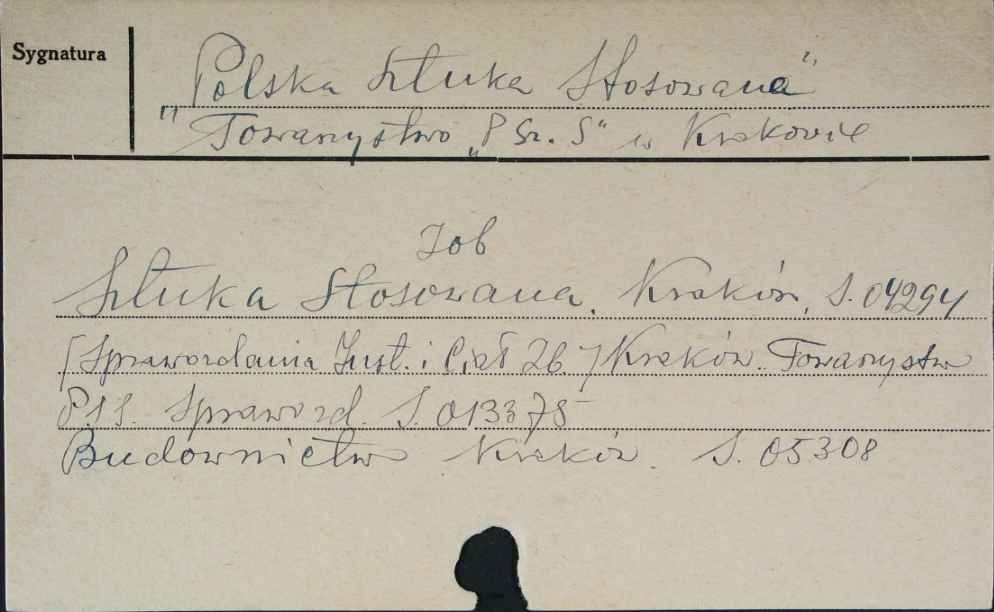 Sygnatura
"Polska Sztuka Stosowana"
Towarzystwo „P Sz. S" w Krakowie
Zob
Sztuka Stosowana. Kraków. S. 04294
[Sprawozdania Inst. i Ciał Zb.] Kraków. Towarzystw
P.S.S. Sprawozd. S. 013375
Budownictwo Kraków. S. 05308